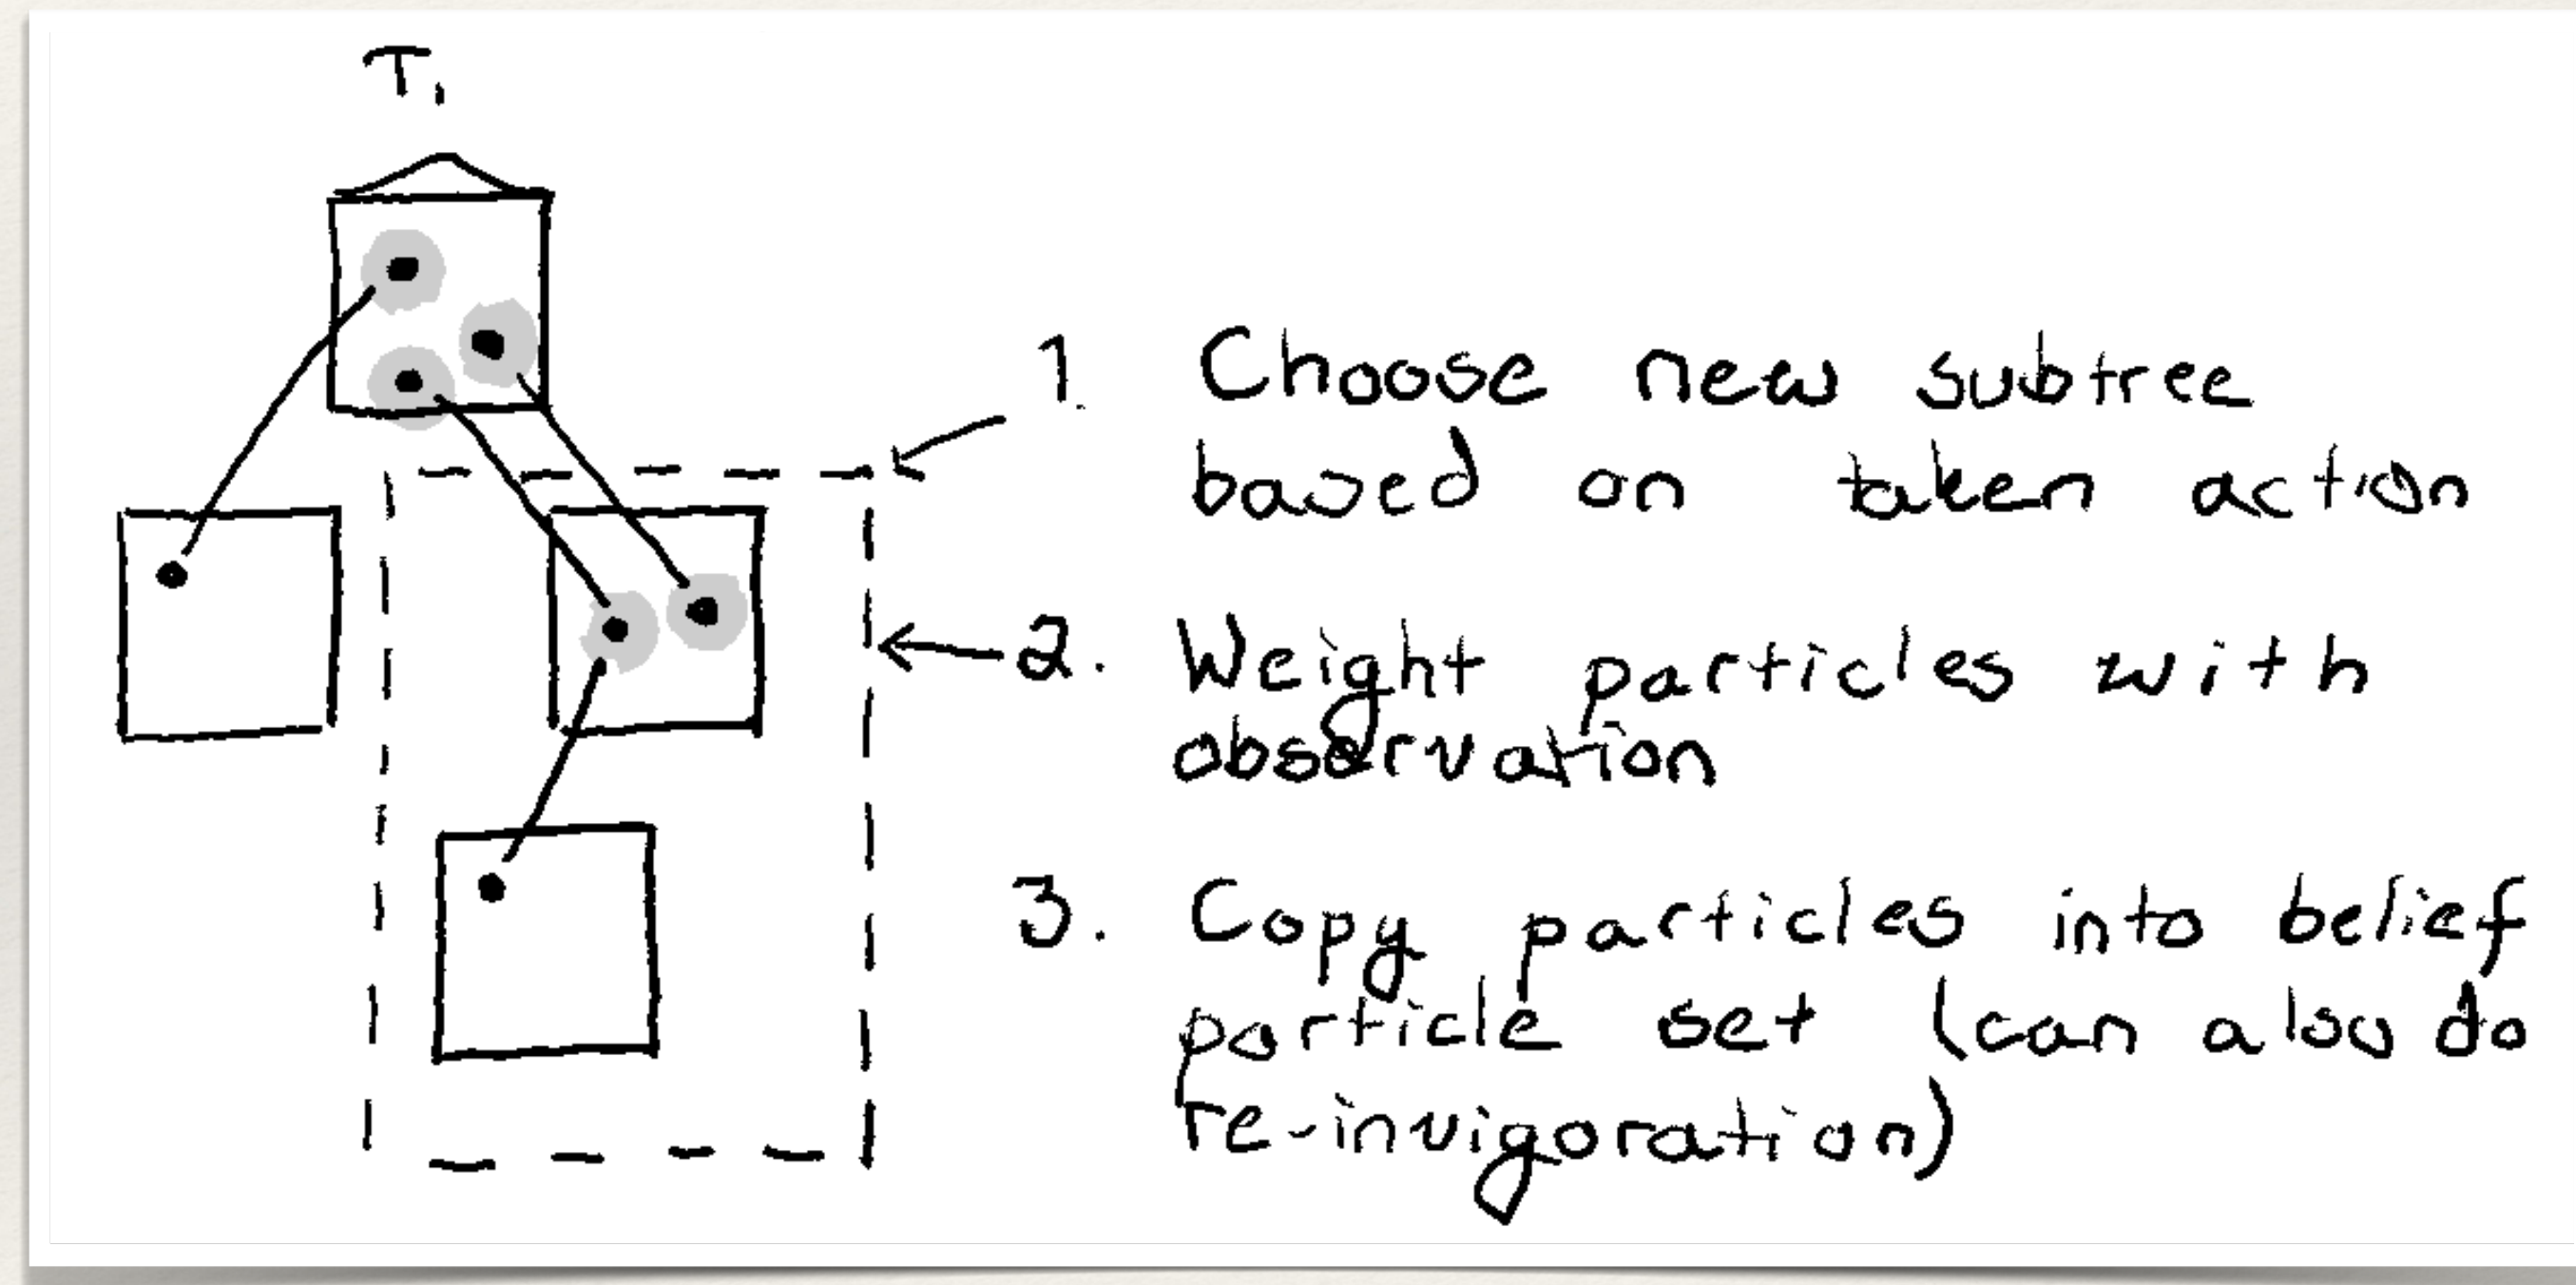 T₁
1. Choose new subtree
based on taken action
2. Weight particles with
observation
3. Copy particles into belief
particle set (can also do
re-invigoration)